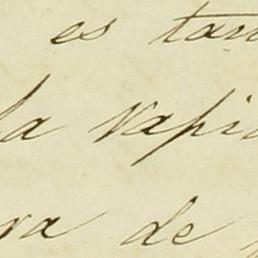 es tan
la rapi
ra de